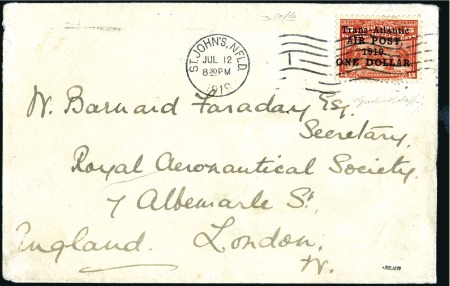 ST. JOHN'S, NFLD.
JUL 12
8 30 PM
1919
Trans-Atlantic
AIR POST,
1919.
ONE DOLLAR.
W. Barnard Faraday Esq.
Secretary.
Royal Aeronautical Society.
7 Albemarle St.
London.
England.
W.